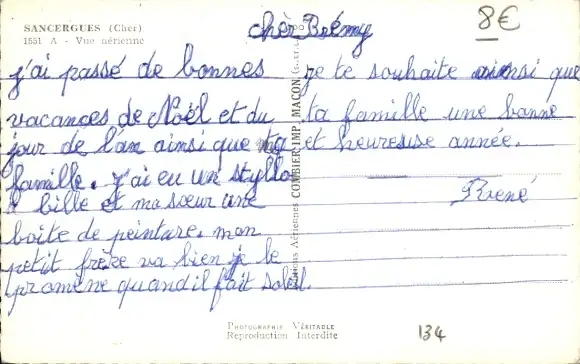 SANCERGUES (Cher)
1551 A - Vue aérienne
8€
chèr Brémy
j'ai passé de bonnes
vacances de Noël et du
jour de l'an ainsi que ta
famille. J'ai eu un styllo
à bille et ma sœur une
boite de peinture. mon
petit frère va bien je le
promène quand il fait soleil.
je te souhaite ainsi que
ta famille une bonne
et heureuse année.
René
Editions Aériennes COMBIER IMP. MACON
PHOTOGRAPHIE VÉRITABLE
Reproduction Interdite
134